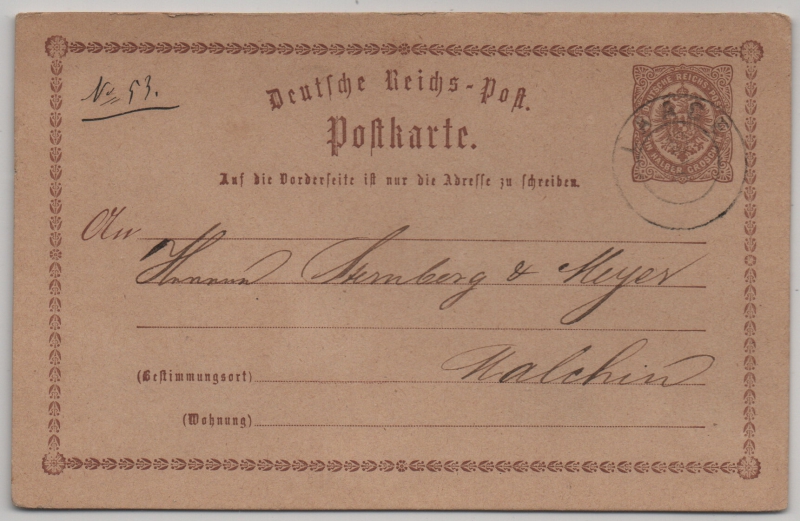 No 53.
Deutsche Reichs-Post.
Postkarte.
DEUTSCHE REICHS-POST
EIN HALBER GROSCHEN
Auf die Vorderseite ist nur die Adresse zu schreiben.
An
Herren Sternberg & Meyer
(Bestimmungsort) Malchin
(Wohnung)